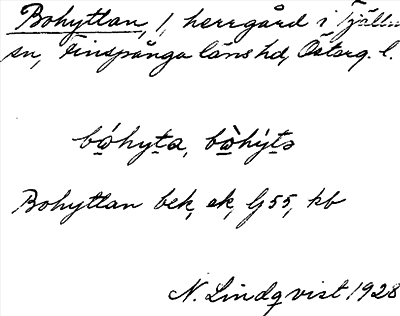 Bohyttan, 1, herrgård i Tjällmo
sn, Finspånga läns hd, Österg. l.
bώhyta, bὼhýtə
Bohyttan bek, ek, Gj 55, kb
N. Lindqvist 1928